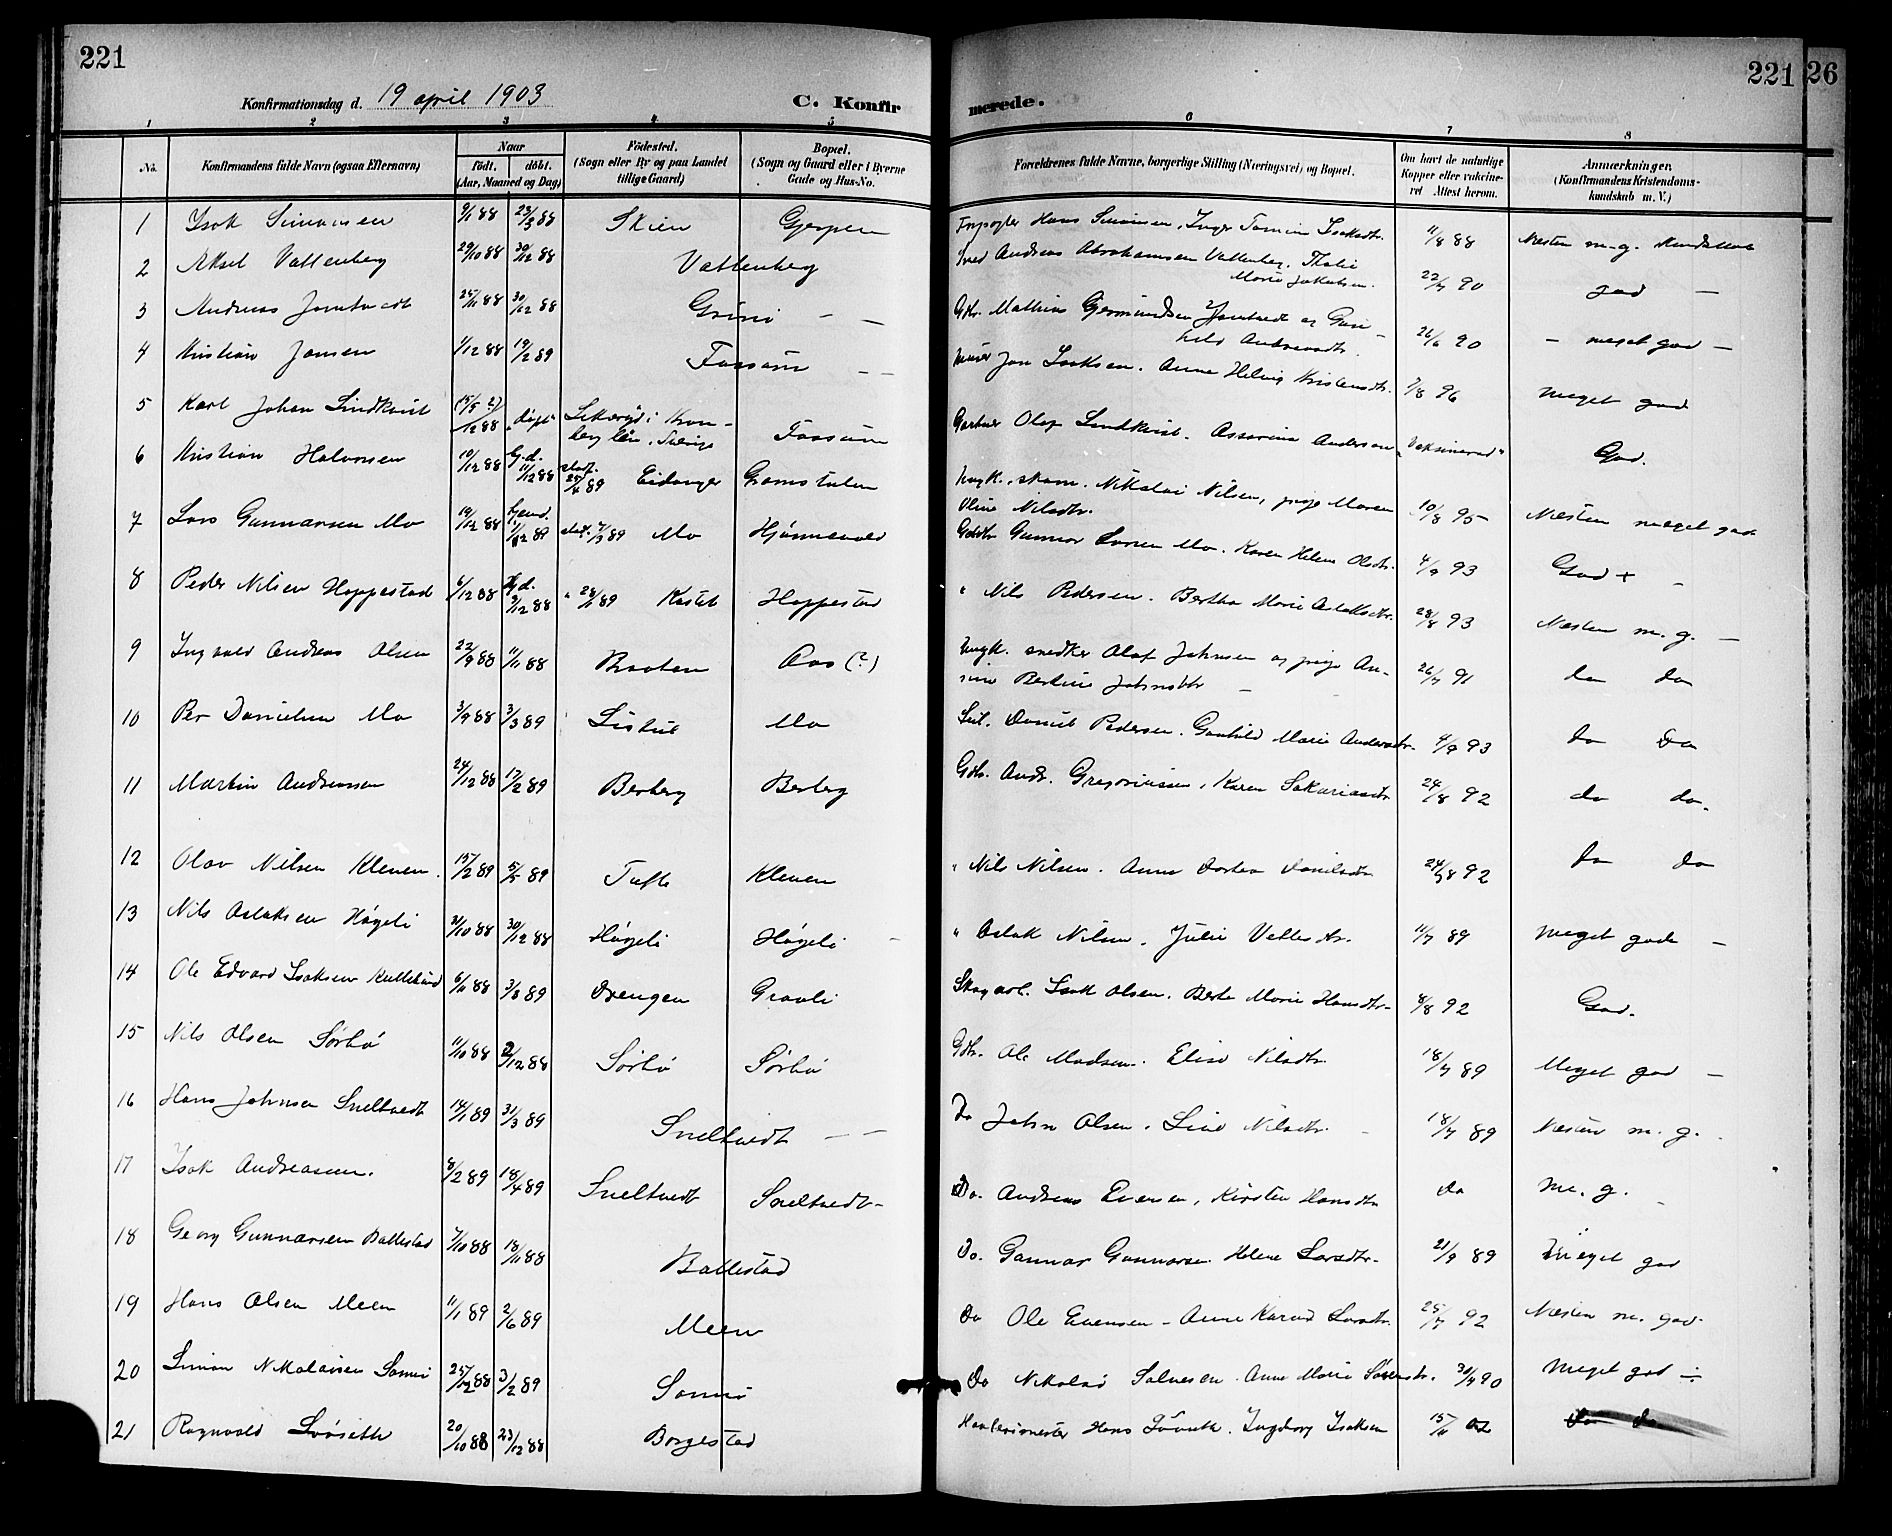 221
Konfirmationsdag d. 19 april 1903
C. Konfir
merede.
221
26
1 2 3 4 5 6 7 8
No.
Konfirmandens fulde Navn (ogsaa Efternavn)
Naar
født. døbt.
(Aar, Maaned og Dag)
Fødested.
(Sogn eller By og paa Landet
tillige Gaard)
Bopæl.
(Sogn og Gaard eller i Byerne
Gade og Hus-No.
Forældrenes fulde Navne, borgerlige Stilling (Næringsvei) og Bopæl.
Om havt de naturlige
Kopper eller vakcine-
ret Attest herom.
Anmærkninger.
(Konfirmandens Kristendoms-
kundskab m. V.)
1 Isak Simonsen 9/1 88 23/3 88 Skien Gjerpen Hans Simonsen, Inger 11/8 88 Næsten m. g.
2 Aksel Vattenberg 29/10 88 30/12 88 Vattenberg Andreas Abrahamsen Vattenberg. Thalie
Marie Jakobsen. 22/7 90 god —
3 Andreas 25/11 88 30/12 88 Grini — — Gbr. Mathias Gjermundsen og Gun-
hild Andreasdtr. 26/6 90 — meget god —
4 Kristian Jansen 1/12 88 19/2 89 Fossum — — Jan Isaksen. Anne Helvig Kristensdtr. 7/8 96 Meget god
5 Karl Johan Lindkvist (15/5 ?) /12 88 "døpt" i Kron-
berg län, Sverige Fossum Gartner Olof Lindkvist. Assarina Anderson "Vaksinerad" God.
6 Kristian Halvorsen 10/12 88 hj.d. 11/12 88 stadf. 25/4 89 Eidanger Gromstulen Ungk. Nikolai Nilsen, pige Maren
Oline Nilsdtr. 10/8 95 Næsten meget god
7 Lars Gunnarsen Mo 19/12 88 hjemd. 89 stadf. 7/3 89 Mo Hjønnevald Gbr. Gunnar Larsen Mo. Karen Helene Olsdtr. 4/9 93 God + —
8 Peder Nilsen Hoppestad 6/12 88 hj.d. 9/12 88 " 28/1 89 Kastet Hoppestad " Nils Pedersen. Bertha Marie Aslaksdtr. 28/8 93 Næsten m. g. —
9 Ingvald Andreas Olsen 22/9 88 11/11 88 Braaten Aas (?) Ungk. snedker Olaf Johnsen og pige An-
sine Bertine Johnsdtr — 26/7 91 do do
10 Per Danielsen Mo 3/9 88 3/3 89 Listul Mo Daniel Pedersen. Gunhild Marie Andersdtr. 4/9 93 do do
11 Martin Andreassen 24/12 88 17/2 89 Berberg Berberg Gbr. Andr. Gregoriussen, Karen Sakariasdtr 24/8 92 do do.
12 Olav Nilsen Kleven. 15/2 89 5/5 89 Tufte Kleven " Nils Nilsen. Anne Dortea Danielsdtr 24/8 92 do do
13 Nils Aslaksen Høgeli 21/10 88 30/12 88 Høgeli Høgeli — " Aslak Nilsen. Julie Vetlesdtr. 11/7 89 Meget gode —
14 Ole Edvard Isaksen 6/11 88 3/3 89 Drengen Graali Skogarb. Isak Olsen. Berte Marie Hansdtr. 8/8 92 God.
15 Nils Olsen Sørbø 11/10 88 2/12 88 Sørbø Sørbø Gbr. Ole Madsen. Elise Nilsdtr. 18/7 89 Meget god —
16 Hans Johnsen Sneltvedt 14/1 89 31/3 89 Sneltvedt — — Do John Olsen. Line Nilsdtr. — 18/7 89 Næsten m. g. —
17 Isak Andreassen. 8/2 89 18/4 89 Sneltvedt Sneltvedt — Do. Andreas Evensen, Kirsten Hansdtr do M. g. —
18 Georg Gunnarsen Ballestad 7/10 88 18/11 88 Ballestad Do. Gunnar Gunnarsen Helene Larsdtr. 21/9 89 Meget god
19 Hans Olsen Meen 11/1 89 2/6 89 Meen Do Ole Evensen — Anne Karine Larsdtr. 25/7 92 Næsten m. god
20 Simon Nikolaisen 25/12 88 3/2 89 Do Nikolai Salvesen. Anne Marie 30/7 90 Meget god ÷
21 Ragnvald 20/10 88 23/12 88 Borgestad Hans Ingeborg Isaksen 15/11 02 do do